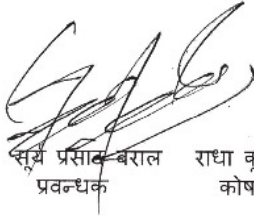 सूर्य प्रसाद बराल राधा कृ
प्रवन्धक कोष